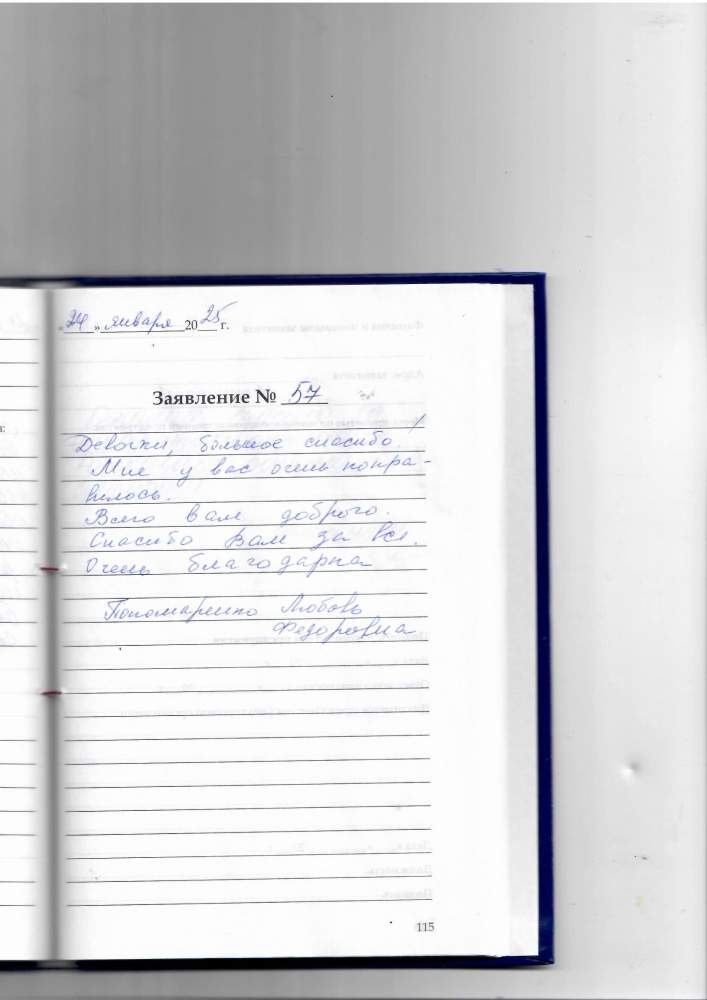 «24» января 2025 г.
Заявление № 57
Девочки, большое спасибо!
Мне у вас очень понра-
вилось.
Всего вам доброго.
Спасибо Вам за все.
Очень благодарна
Пономаренко Любовь
Федоровна
115